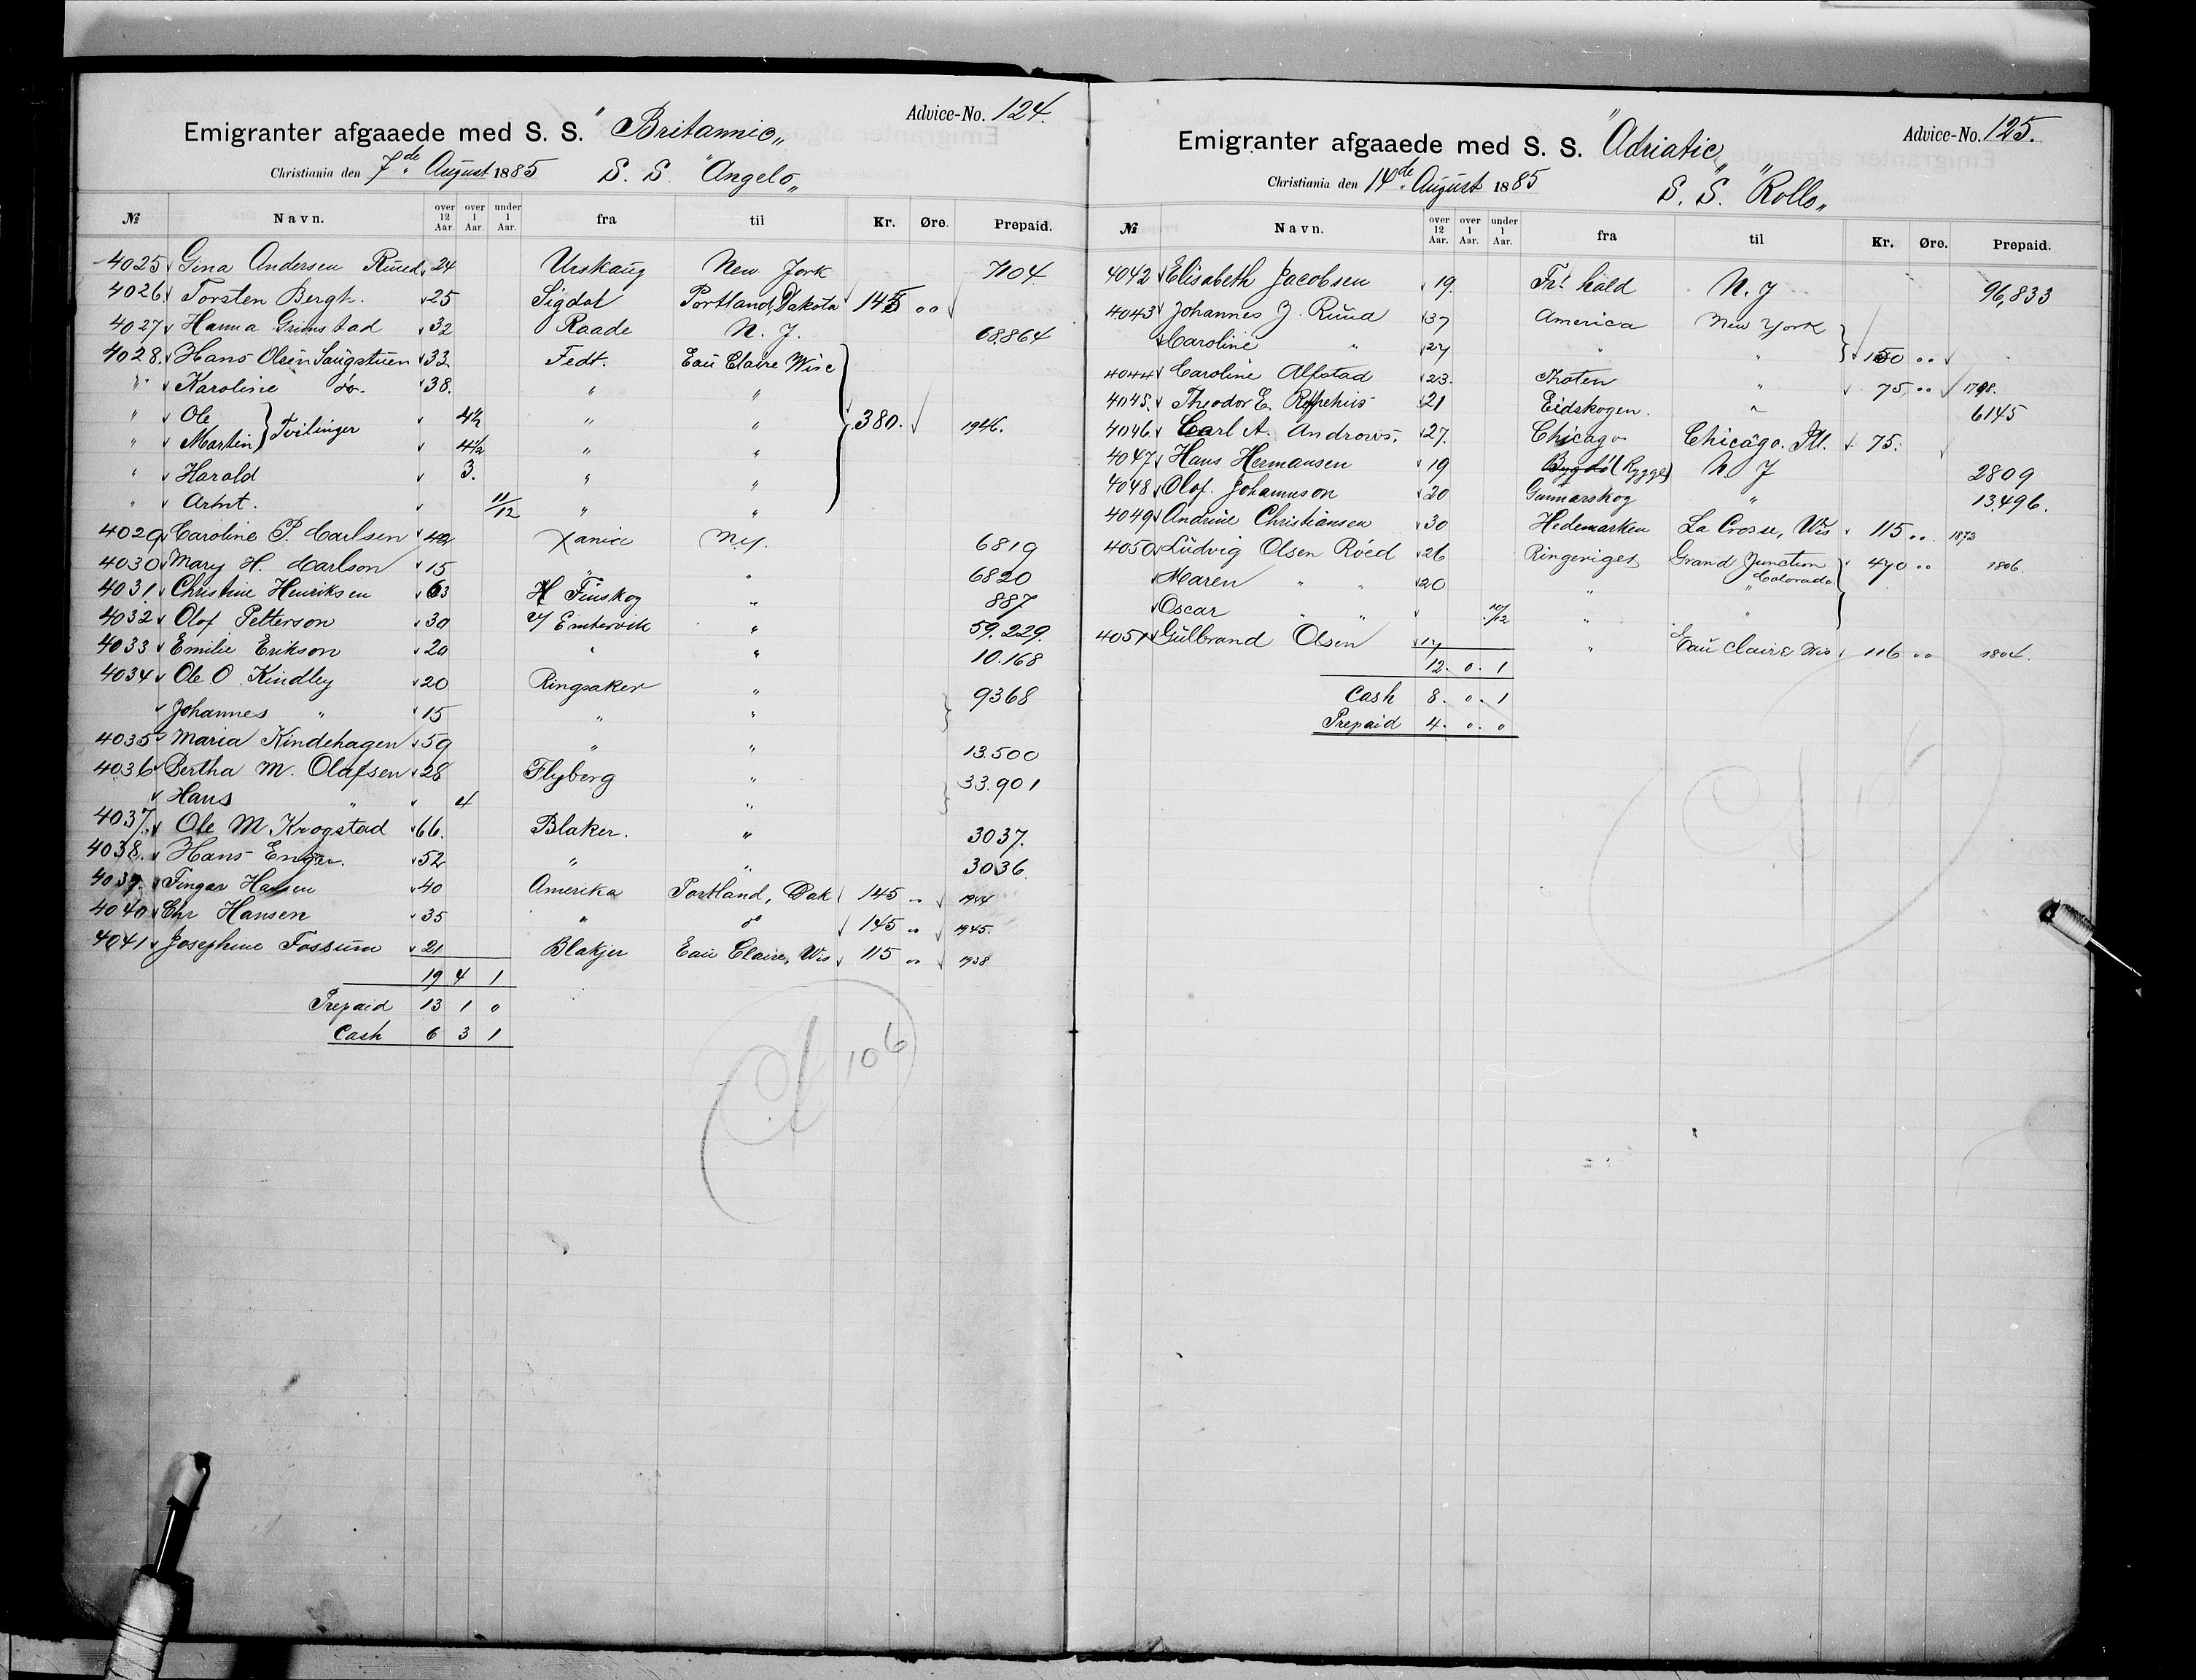 Advice-No. 124.
Emigranter afgaaede med S. S. "Britannic„
Christiania den 7de August 1885 S. S. "Angelo„
№ Navn. over 12 Aar. over 1 Aar. under 1 Aar. fra til Kr. Øre. Prepaid.
4025 Gina Andersen Ruud 24 Urskaug New York 7104
4026 Torsten Bergh. 25 Sigdal Portland, Dakota 145 00
4027 Hanna Grimstad 32 Raade N. Y. 68,864
4028. Hans Olsen Saugstuen 33 Fedt. Eau Claire Wisc
" Karoline do. 38. " "
" Ole 4½ " " 380. 1946.
" Martin } Tvilinger 4½ " "
" Harold 3. " "
" Arnt. 11/12 " "
4029 Caroline P. Carlsen 42 Xania N.Y. 6819
4030 Mary H. Carlson 15 " " 6820
4031 Christine Henriksen 63 Finskog " 887
4032 Olof Petterson 30 " 59.229.
4033 Emilie Erikson 20 " " 10.168
4034 Ole O Kindley 20 Ringsaker " 9368
Johannes " 15 " "
4035 Maria Kindehagen 59 " " 13.500
4036 Bertha M. Olafsen 28 Flyberg " 33.901
Hans " 4 "
4037. Ole M Krogstad 66. Blaker. " 3037.
4038. Hans Enger. 52 " " 3036
4039. Fingar Hansen 40 Amerika Portland, Dak 145 " 1944
4040 Chr Hansen 35 " do 145 " 1945.
4041 Josephine Fossum 21 Blakjer Eau Claire, Wis 115 00 1938
19 4 1
Prepaid 13 1 0
Cash 6 3 1
106
Advice-No. 125.
Emigranter afgaaede med S. S. "Adriatic„
Christiania den 14de August 1885 S. S. "Rollo„
№ Navn. over 12 Aar. over 1 Aar. under 1 Aar. fra til Kr. Øre. Prepaid.
4042 Elisabeth Jacobsen 19. Frs hald N. Y 96,833
4043 Johannes J. Ruud 37 America New York
Caroline " 27 " " 150 00
4044 Caroline Alfstad 23. Thoten " 75 00 1798.
4045. Theodor E. 21 Eidskogen. " 6145
4046 Carl A. Androws. 27. Chicago Chicago. Ill. 75.
4047 Hans Hermansen 19 Bygdö (Rygge) N. Y 2809
4048 Olof. Johannson 20 Gunnarskog " 13,496.
4049 Andrine Christiansen 30 Hedemarken La Crosse, Wis 115 00 1873
4050 Ludvig Olsen Röed 26 Ringeriget Grand Junction 470 00 1806.
Maren " " 20 " " Colorado
Oscar " " 10/12 " "
4051 Gulbrand Olsen 17 " Eau Claire Wis 116 00 1804.
12. 0. 1
Cash 8. 0. 1
Prepaid 4. 0. 0